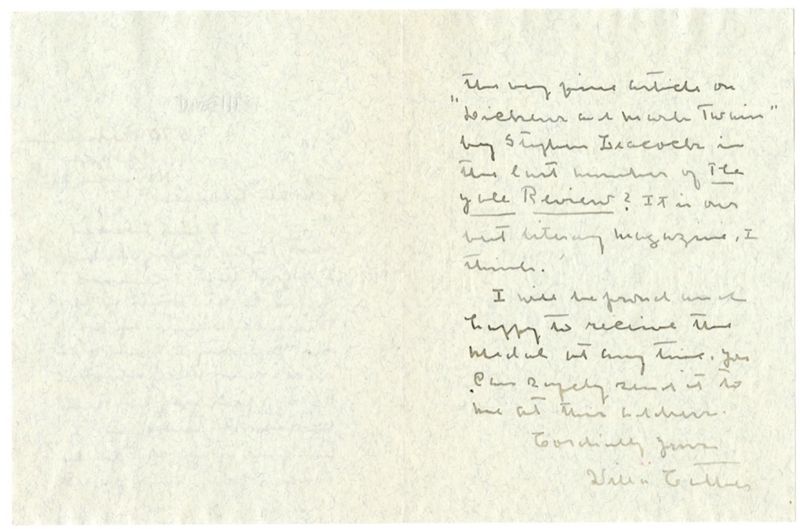 the very fine article on
"Dickens and Mark Twain"
by Stephen Leacock in
the last number of The
Yale Review? It is our
best literary magazine, I
think.
I will be proud and
happy to receive the
Medal at any time. You
can safely send it to
me at this address.
Cordially yours
Willa Cather